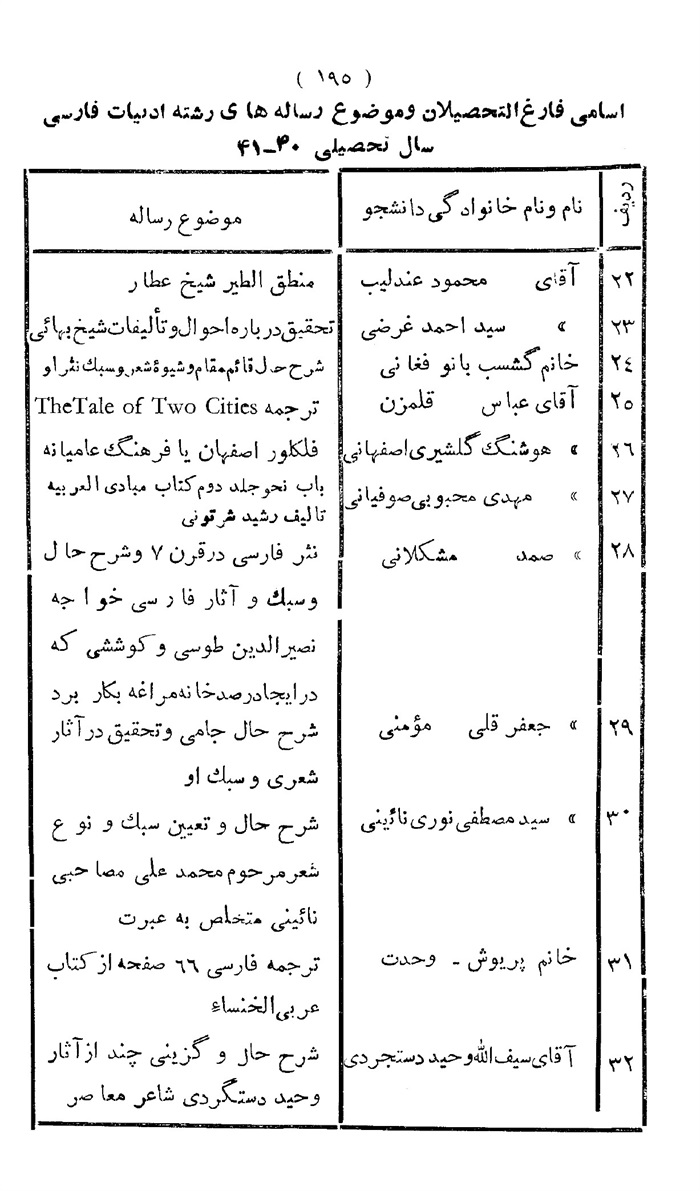 ( ۱۹۵ )
اسامی فارغ‌التحصیلان و موضوع رساله های رشته ادبیات فارسی
سال تحصیلی ۴۰-۴۱
ردیف نام و نام خانوادگی دانشجو موضوع رساله
۲۲ آقای محمود عندلیب منطق الطیر شیخ عطار
۲۳ » سید احمد غرضی تحقیق درباره احوال و تألیفات شیخ بهائی
۲٤ خانم گشسب بانو فغانی شرح حال قائم مقام و شیوهٔ شعر و سبك نثر او
۲۵ آقای عباس قلمزن ترجمه TheTale of Two Cities
۲٦ » هوشنگ گلشیری اصفهانی فلکلور اصفهان یا فرهنگ عامیانه
۲۷ » مهدی محبوبی صوفیانی باب نحو جلد دوم کتاب مبادی العربیه
تالیف رشید شرتونی
۲۸ » صمد مشکلانی نثر فارسی در قرن ۷ و شرح حال
و سبك و آثار فارسی خواجه
نصیرالدین طوسی و کوششی که
در ایجاد رصدخانه مراغه بکار برد
۲۹ » جعفر قلی مؤمنی شرح حال جامی و تحقیق در آثار
شعری و سبك او
۳۰ » سید مصطفی نوری نائینی شرح حال و تعیین سبك و نوع
شعر مرحوم محمد علی مصاحبی
نائینی متخلص به عبرت
۳۱ خانم پریوش - وحدت ترجمه فارسی ٦٦ صفحه از کتاب
عربی الخنساء
۳۲ آقای سیف الله وحید دستجردی شرح حال و گزینی چند از آثار
وحید دستگردی شاعر معاصر